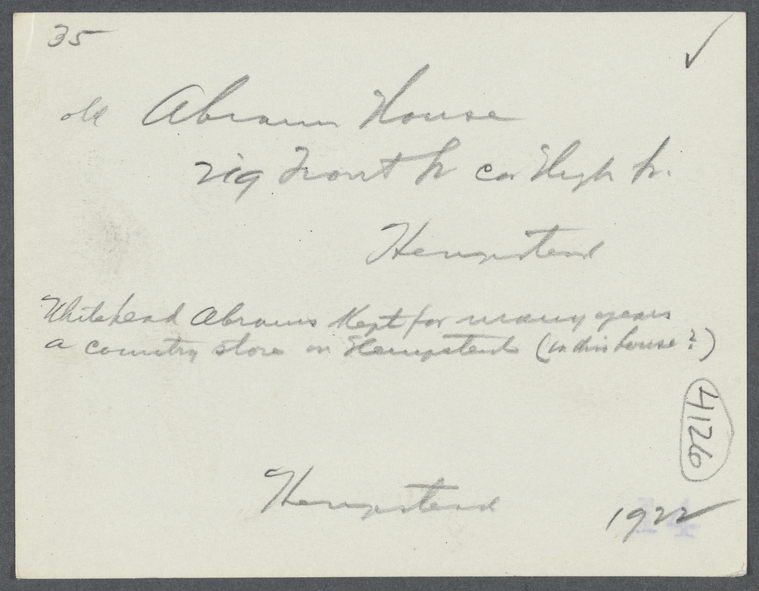 35
old Abrams House
219 Front St cor High St.
Hempstead
Whitehead Abrams kept for many years
a country store in Hempstead (in this house?)
4126
Hempstead
1922